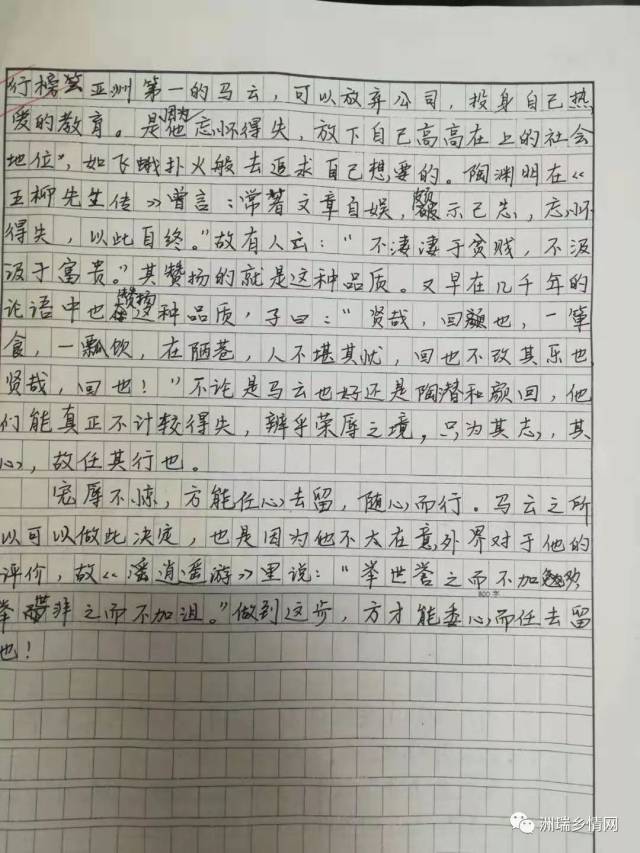 行榜亚洲第一的马云，可以放弃公司，投身自己热
爱的教育。是因为他忘怀得失，放下自己高高在上的社会
地位"，如飞蛾扑火般去追求自己想要的。陶渊明在《
五柳先生传》曾言：常著文章自娱，颇示己志，忘怀
得失，以此自终。"故有人云："不凄凄于贫贱，不汲
汲于富贵。"其赞扬的就是这种品质。又早在几千年的
论语中也赞扬这种品质，子曰："贤哉，回也，一箪
食，一瓢饮，在陋巷，人不堪其忧，回也不改其乐也
贤哉，回也！"不论是马云也好还是陶潜和颜回，他
们能真正不计较得失，辨乎荣辱之境，只为其志，其
心，故任其行也。
宠辱不惊，方能任心去留，随心而行。马云之所
以可以做此决定，也是因为他不太在意外界对于他的
评价，故《逍遥游》里说："举世誉之而不加劝
800字
举世非之而不加沮。"做到这步，方才能委心而任去留
也！
洲瑞乡情网